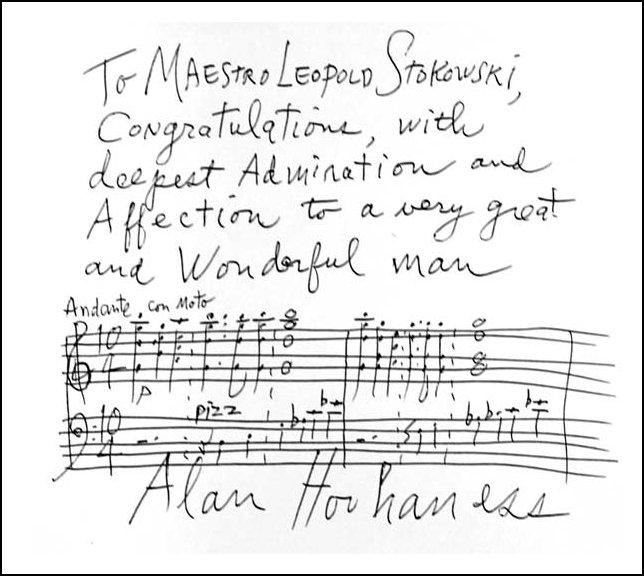 To MAESTRO LEOPOLD STOKOWSKI,
Congratulations, with
deepest Admiration and
Affection to a very great
and Wonderful man
Andante con moto
10
4
p
pizz
10
4
Alan Hovhaness